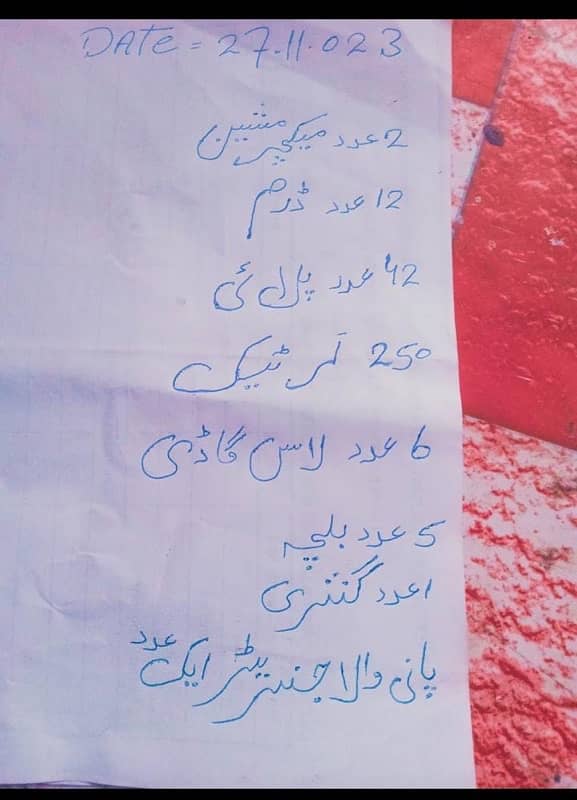 DATE = 27.11.023
2 عدد میکچر مشین
12 عدد ڈرم
42 عدد پلائی
250 ٹیک
6 عدد لاس گاڈی
5 عدد بلچہ
1 عدد گنتری
پانی والا جنتریٹر ایک عدد